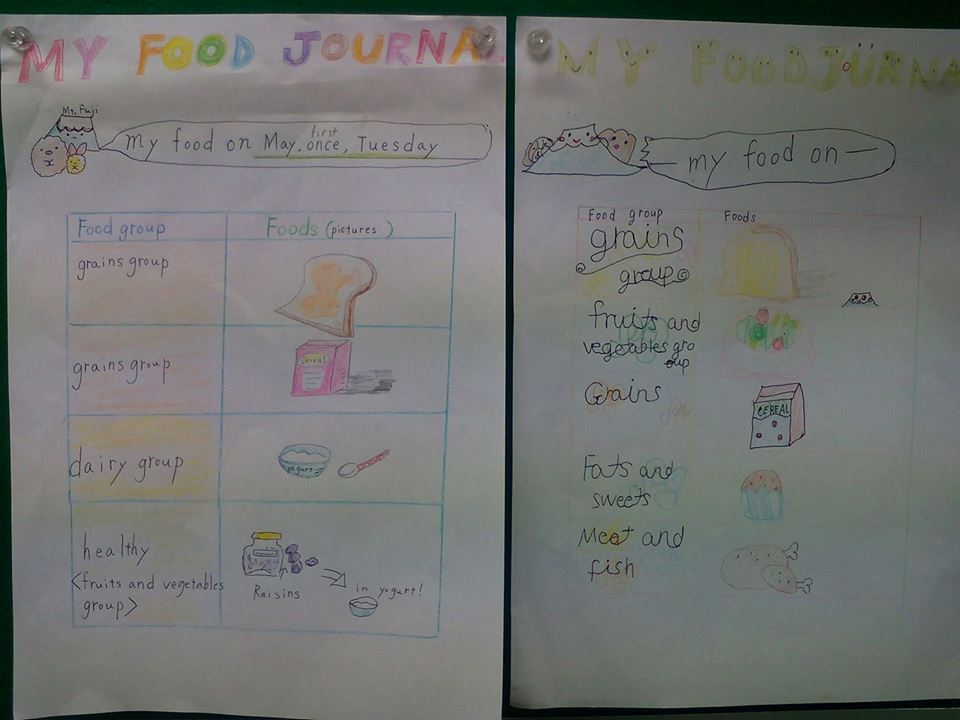 MY FOOD JOURNA
Mt. Fuji
my food on May, first once, Tuesday
Food group Foods (pictures)
grains group
grains group
Cereal
dairy group
yogurt
healthy
<fruits and vegetables
group>
Raisins
in yogurt!
MY FOOD JOURNA
my food on —
Food group Foods
grains
group
fruits and
vegetables gro
oup
Grains
CEREAL
Fats and
sweets
Meat and
fish